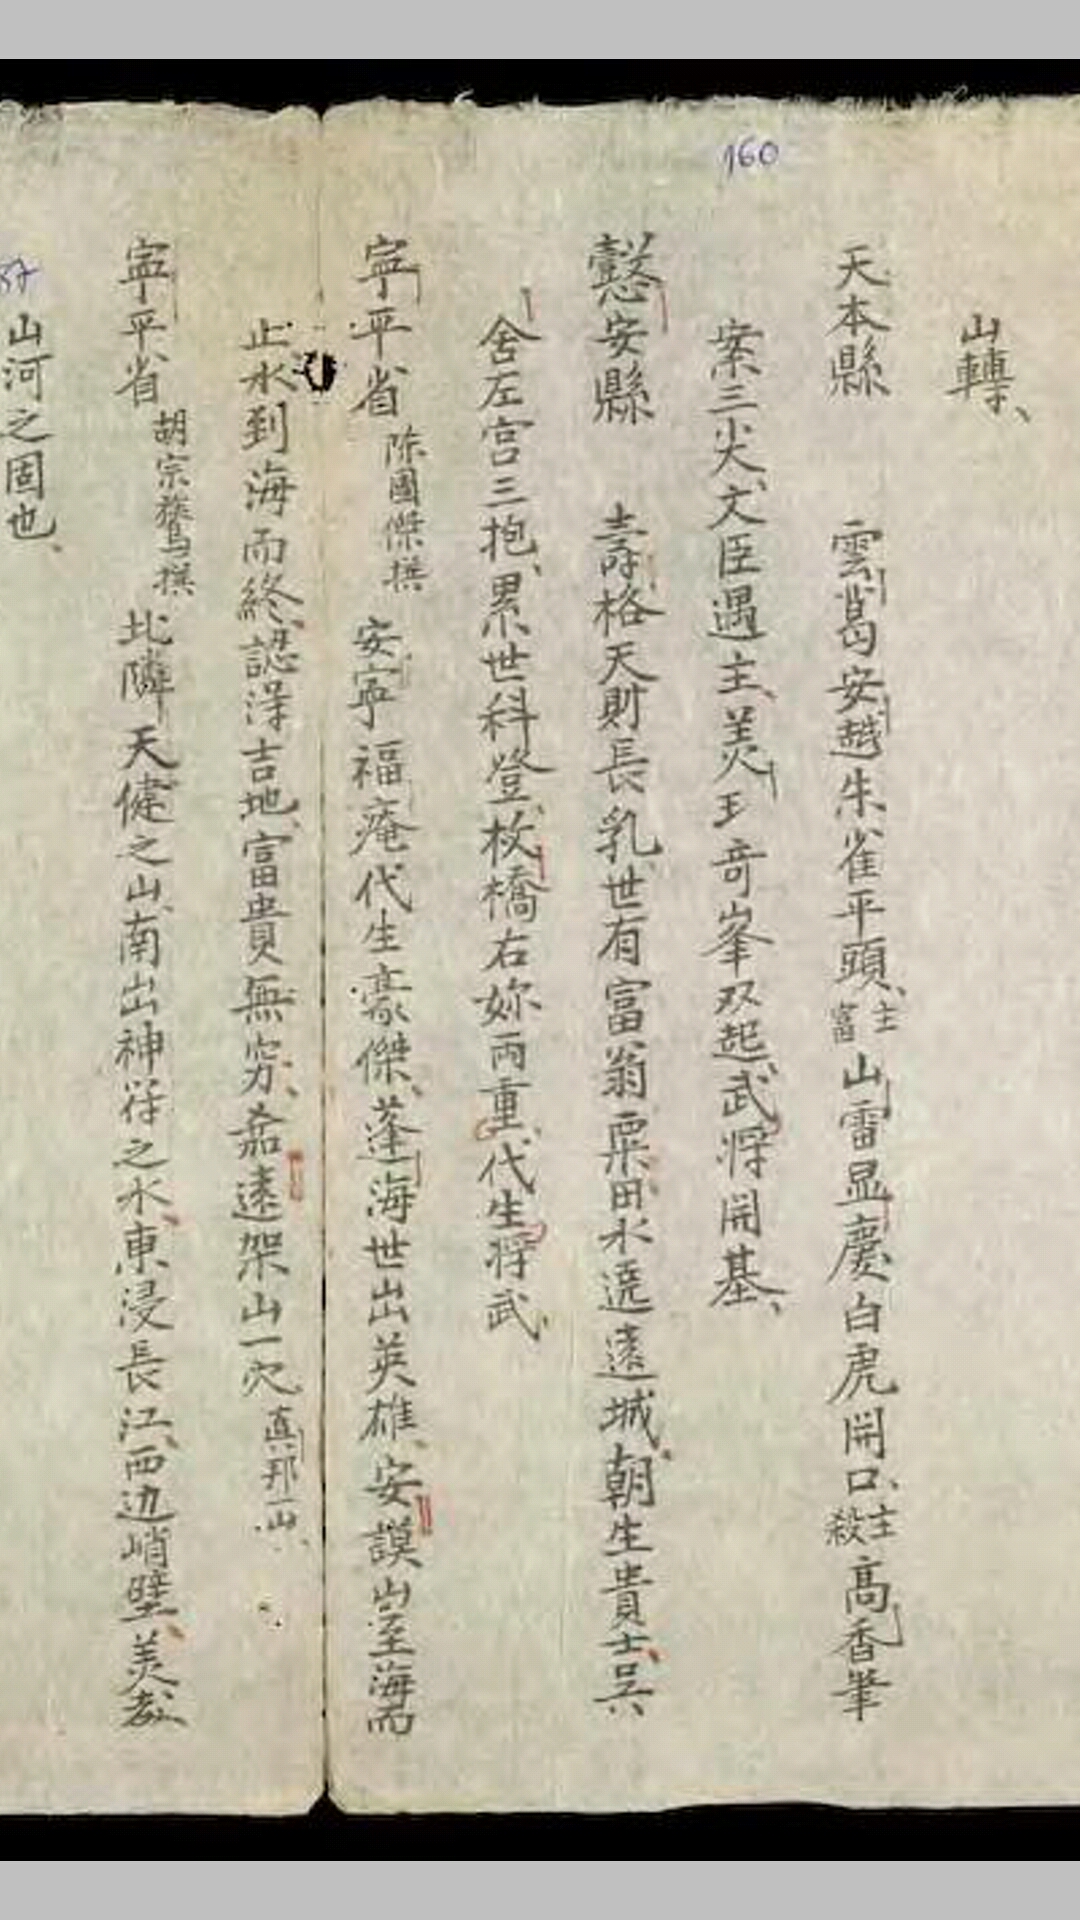 160
山轉、
天本縣 雲葛安越朱雀平頭、主富山雷显慶白虎開口、主殺高香筆
案三尖、文臣遇主、美玉奇峯双起、武将開基、
懿安縣 壽格天財長乳、世有富翁粟田水遶遠城、朝生貴士、吳
舍左宫三抱、累世科登、枚橋右妳兩重、代生将武、
寕平省 陈國傑撰 安寕福庵代生豪傑、蓬海世出英雄、安謨峀至海而
止、水到海而終、認淂吉地、富貴無穷、嘉遠架山一穴 真邦一山、
寕平省 胡宗鷟撰 北隣天健之山、南出神符之水、東浸長江、西边峭壁、美哉
山河之固也、